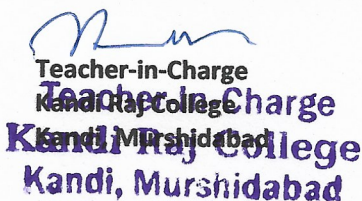 Teacher-in-Charge
Kandi Raj College
Kandi, Murshidabad
Teacher-in-Charge
Kandi Raj College
Kandi, Murshidabad